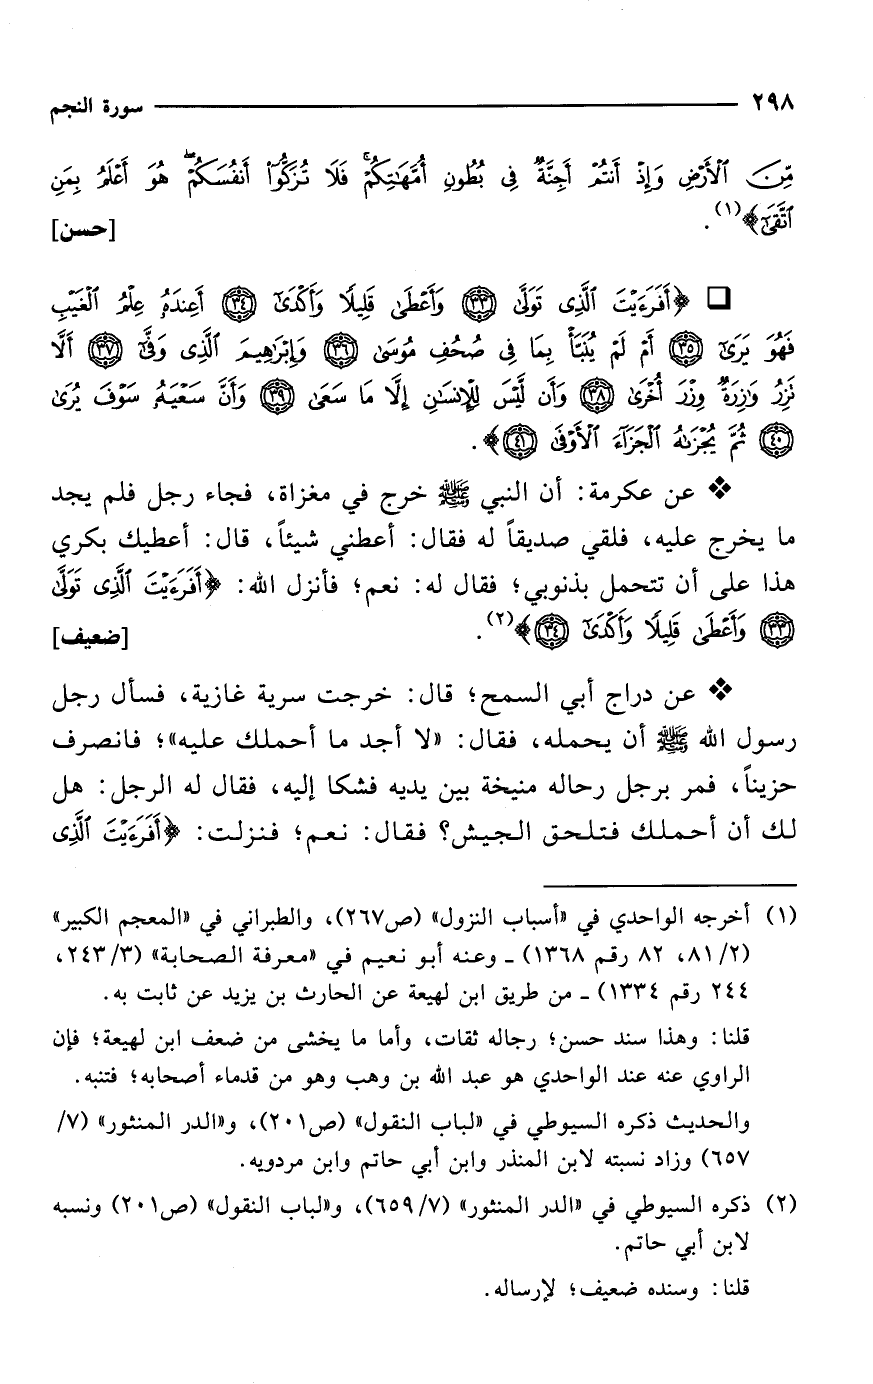 ٢٩٨ سورة النجم
مِّنَ ٱلْأَرْضِ وَإِذْ أَنتُمْ أَجِنَّةٌ فِى بُطُونِ أُمَّهَٰتِكُمْ ۖ فَلَا تُزَكُّوٓا۟ أَنفُسَكُمْ ۖ هُوَ أَعْلَمُ بِمَنِ
ٱتَّقَىٰٓ﴾(١). [حسن]
❑ ﴿أَفَرَءَيْتَ ٱلَّذِى تَوَلَّىٰ ﴿٣٣﴾ وَأَعْطَىٰ قَلِيلًا وَأَكْدَىٰٓ ﴿٣٤﴾ أَعِندَهُۥ عِلْمُ ٱلْغَيْبِ
فَهُوَ يَرَىٰٓ ﴿٣٥﴾ أَمْ لَمْ يُنَبَّأْ بِمَا فِى صُحُفِ مُوسَىٰ ﴿٣٦﴾ وَإِبْرَٰهِيمَ ٱلَّذِى وَفَّىٰٓ ﴿٣٧﴾ أَلَّا
تَزِرُ وَازِرَةٌ وِزْرَ أُخْرَىٰ ﴿٣٨﴾ وَأَن لَّيْسَ لِلْإِنسَٰنِ إِلَّا مَا سَعَىٰ ﴿٣٩﴾ وَأَنَّ سَعْيَهُۥ سَوْفَ يُرَىٰ
﴿٤٠﴾ ثُمَّ يُجْزَىٰهُ ٱلْجَزَآءَ ٱلْأَوْفَىٰ ﴿٤١﴾﴾.
❖ عن عكرمة: أن النبي ﷺ خرج في مغزاة، فجاء رجل فلم يجد
ما يخرج عليه، فلقي صديقاً له فقال: أعطني شيئاً، قال: أعطيك بكري
هذا على أن تتحمل بذنوبي؛ فقال له: نعم؛ فأنزل الله: ﴿أَفَرَءَيْتَ ٱلَّذِى تَوَلَّىٰ
﴿٣٣﴾ وَأَعْطَىٰ قَلِيلًا وَأَكْدَىٰٓ ﴿٣٤﴾﴾(٢). [ضعيف]
❖ عن دراج أبي السمح؛ قال: خرجت سرية غازية، فسأل رجل
رسول الله ﷺ أن يحمله، فقال: «لا أجد ما أحملك عليه»؛ فانصرف
حزيناً، فمر برجل رحاله منيخة بين يديه فشكا إليه، فقال له الرجل: هل
لك أن أحملك فتلحق الجيش؟ فقال: نعم؛ فنزلت: ﴿أَفَرَءَيْتَ ٱلَّذِى
(١) أخرجه الواحدي في «أسباب النزول» (ص٢٦٧)، والطبراني في «المعجم الكبير»
(٢/ ٨١، ٨٢ رقم ١٣٦٨) ـ وعنه أبو نعيم في «معرفة الصحابة» (٣/ ٢٤٣،
٢٤٤ رقم ١٣٣٤) ـ من طريق ابن لهيعة عن الحارث بن يزيد عن ثابت به.
قلنا: وهذا سند حسن؛ رجاله ثقات، وأما ما يخشى من ضعف ابن لهيعة؛ فإن
الراوي عنه عند الواحدي هو عبد الله بن وهب وهو من قدماء أصحابه؛ فتنبه.
والحديث ذكره السيوطي في «لباب النقول» (ص٢٠١)، و«الدر المنثور» (٧/
٦٥٧) وزاد نسبته لابن المنذر وابن أبي حاتم وابن مردويه.
(٢) ذكره السيوطي في «الدر المنثور» (٧/ ٦٥٩)، و«لباب النقول» (ص٢٠١) ونسبه
لابن أبي حاتم.
قلنا: وسنده ضعيف؛ لإرساله.